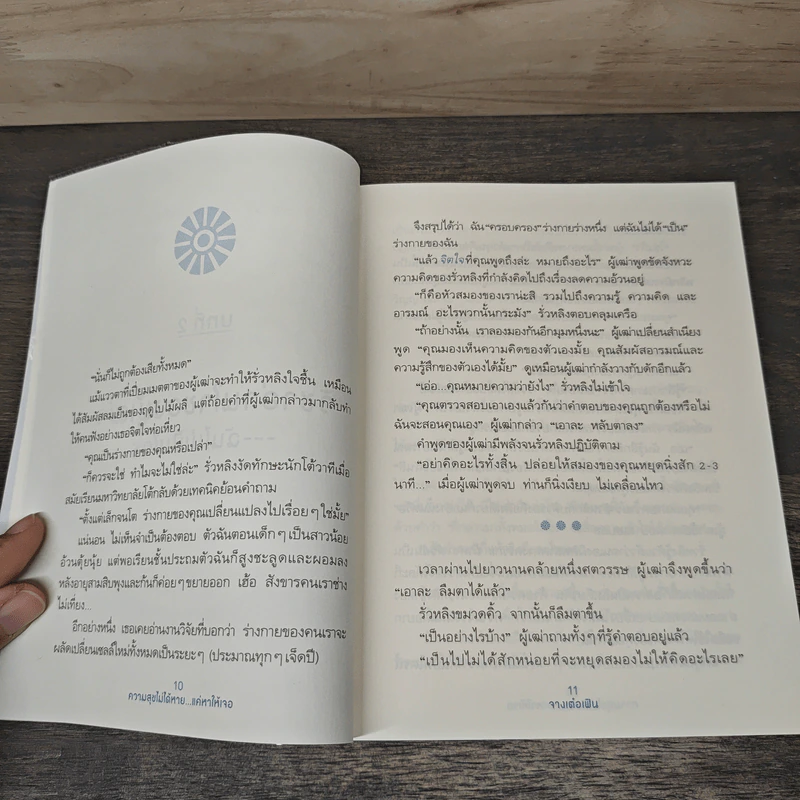 "นั่นก็ไม่ถูกต้องเสียทั้งหมด"
แม้แววตาที่เปี่ยมเมตตาของผู้เฒ่าจะทำให้รั่วหลิงใจชื้น เหมือน
ได้สัมผัสลมเย็นของฤดูใบไม้ผลิ แต่ถ้อยคำที่ผู้เฒ่ากล่าวมากลับทำ
ให้คนฟังอย่างเธอจิตใจห่อเหี่ยว
"คุณเป็นร่างกายของคุณหรือเปล่า"
"ก็ควรจะใช่ ทำไมจะไม่ใช่ล่ะ" รั่วหลิงงัดทักษะนักโต้วาทีเมื่อ
สมัยเรียนมหาวิทยาลัยโต้กลับด้วยเทคนิคย้อนคำถาม
"ตั้งแต่เล็กจนโต ร่างกายของคุณเปลี่ยนแปลงไปเรื่อยๆ ใช่มั้ย"
แน่นอน ไม่เห็นจำเป็นต้องตอบ ตัวฉันตอนเด็กๆ เป็นสาวน้อย
อ้วนตุ้ยนุ้ย แต่พอเรียนชั้นประถมตัวฉันก็สูงชะลูดและผอมลง
หลังอายุสามสิบพุงและก้นก็ค่อยๆ ขยายออก เฮ้อ สังขารคนเราช่าง
ไม่เที่ยง...
อีกอย่างหนึ่ง เธอเคยอ่านงานวิจัยที่บอกว่า ร่างกายของคนเราจะ
ผลัดเปลี่ยนเซลล์ใหม่ทั้งหมดเป็นระยะๆ (ประมาณทุกๆ เจ็ดปี)
10
ความสุขไม่ได้หาย...แค่หาให้เจอ
จึงสรุปได้ว่า ฉัน "ครอบครอง" ร่างกายร่างหนึ่ง แต่ฉันไม่ได้ "เป็น"
ร่างกายของฉัน
"แล้ว จิตใจ ที่คุณพูดถึงล่ะ หมายถึงอะไร" ผู้เฒ่าพูดขัดจังหวะ
ความคิดของรั่วหลิงที่กำลังคิดไปถึงเรื่องลดความอ้วนอยู่
"ก็คือหัวสมองของเราน่ะสิ รวมไปถึงความรู้ ความคิด และ
อารมณ์ อะไรพวกนั้นกระมัง" รั่วหลิงตอบคลุมเครือ
"ถ้าอย่างนั้น เราลองมองกันอีกมุมหนึ่งนะ" ผู้เฒ่าเปลี่ยนสำเนียง
พูด "คุณมองเห็นความคิดของตัวเองมั้ย คุณสัมผัสอารมณ์และ
ความรู้สึกของตัวเองได้มั้ย" ดูเหมือนผู้เฒ่ากำลังวางกับดักอีกแล้ว
"เอ่อ...คุณหมายความว่ายังไง" รั่วหลิงไม่เข้าใจ
"คุณตรวจสอบเอาเองแล้วกันว่าคำตอบของคุณถูกต้องหรือไม่
ฉันจะสอนคุณเอง" ผู้เฒ่ากล่าว "เอาละ หลับตาลง"
คำพูดของผู้เฒ่ามีพลังจนรั่วหลิงปฏิบัติตาม
"อย่าคิดอะไรทั้งสิ้น ปล่อยให้สมองของคุณหยุดนิ่งสัก 2-3
นาที..." เมื่อผู้เฒ่าพูดจบ ท่านก็นิ่งเงียบ ไม่เคลื่อนไหว
เวลาผ่านไปยาวนานคล้ายหนึ่งศตวรรษ ผู้เฒ่าจึงพูดขึ้นว่า
"เอาละ ลืมตาได้แล้ว"
รั่วหลิงขมวดคิ้ว จากนั้นก็ลืมตาขึ้น
"เป็นอย่างไรบ้าง" ผู้เฒ่าถามทั้งๆ ที่รู้คำตอบอยู่แล้ว
"เป็นไปไม่ได้สักหน่อยที่จะหยุดสมองไม่ให้คิดอะไรเลย"
11
จางเต๋อเฟิน